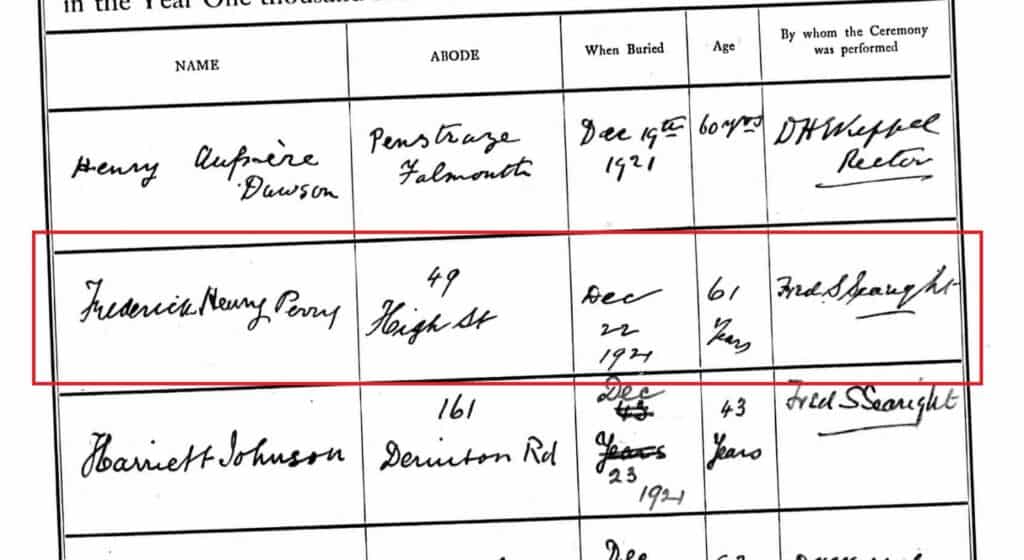 in the Year One thousand
NAME
ABODE
When Buried
Age
By whom the Ceremony
was performed
Henry Aufrère
Dawson
Penstraze
Falmouth
Dec 19th
1921
60 yrs
DHG Keppel
Rector
Frederick Henry Perry
49
High St
Dec
22
1921
61
Years
Fred S Searight
Harriett Johnson
161
Deninton Rd
Dec
43
Years
23
1921
43
Years
Fred S Searight
Dec